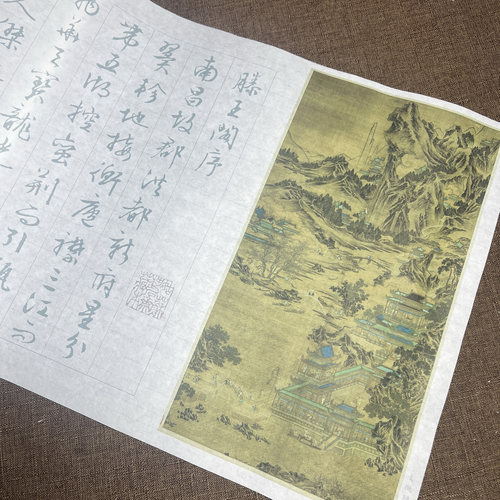 滕王阁序
南昌故郡洪都新府星分
翼轸地接衡庐襟三江而
带五湖控蛮荆而引瓯
物华天宝龙光
人杰